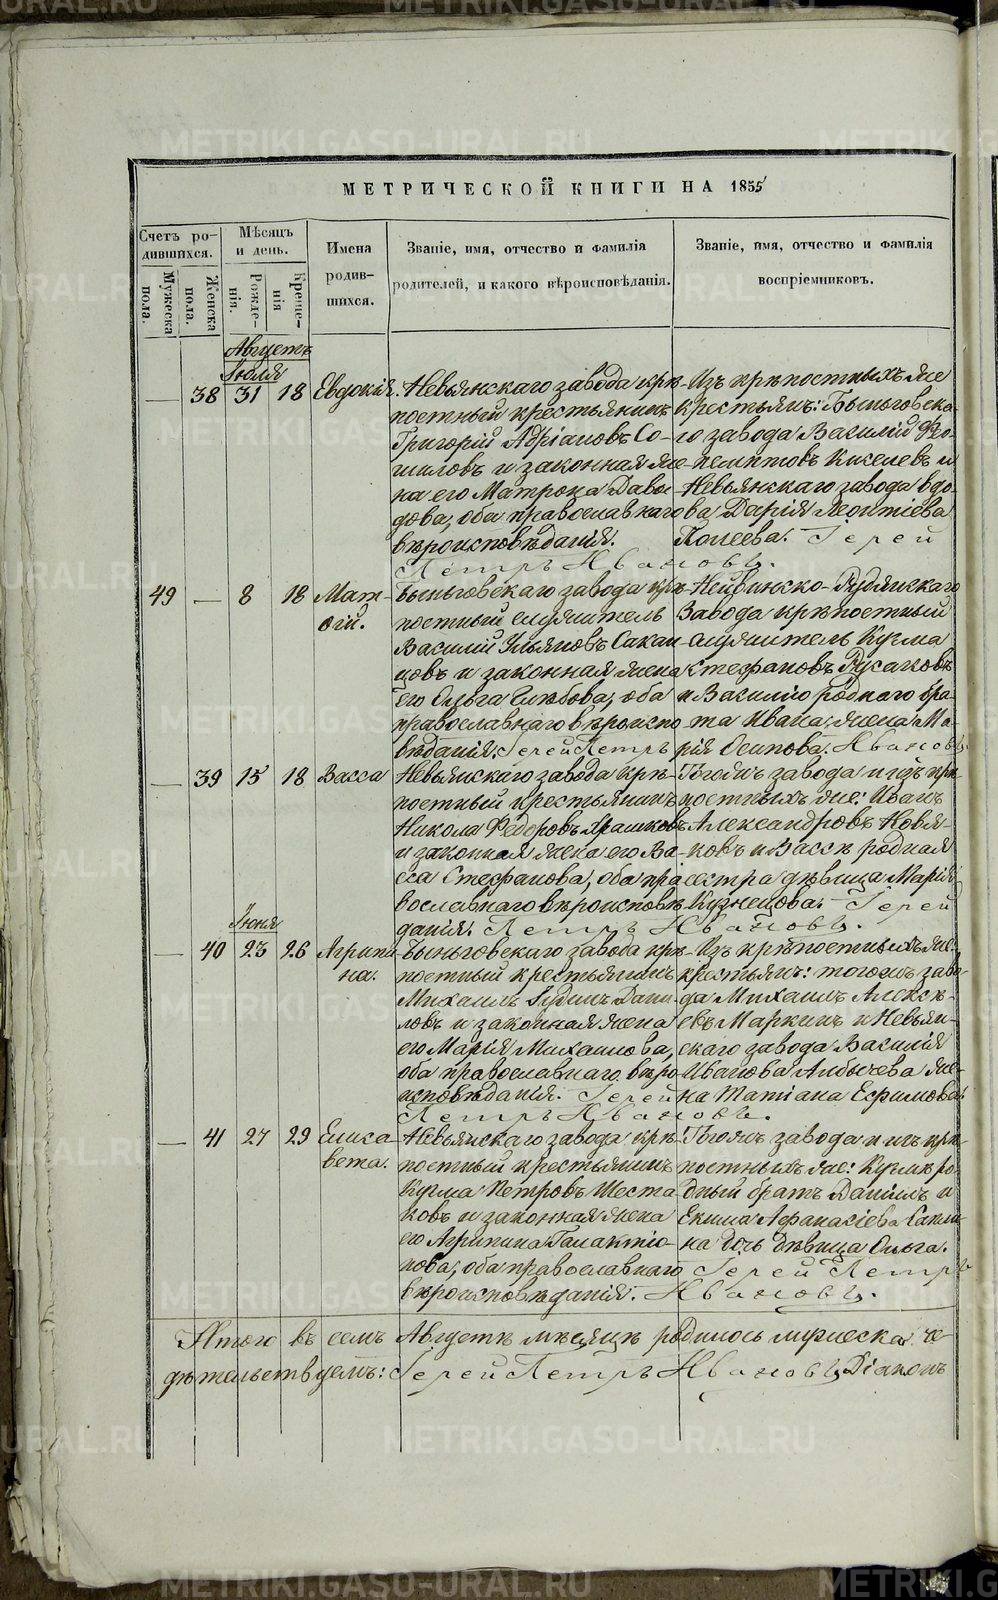 METRIKI.GASO-URAL.RU
МЕТРИЧЕСКОЙ КНИГИ НА 1855
Счетъ ро-
дившихся.
Мѣсяцъ
и день.
Имена
родив-
шихся.
Званіе, имя, отчество и фамилія
родителей, и какого вѣроисповѣданія.
Званіе, имя, отчество и фамилія
воспріемниковъ.
Мужеска
пола.
Женска
пола.
Рожде-
нія.
Креще-
нія
Августъ
Іюля
— 38 31 18 Евдокія.
Невьянскаго завода крѣ-
постный крестьянинъ
Григорій Адріановъ Со-
шиловъ и законная же-
на его Матрона Давы-
дова, оба православнаго
вѣроисповѣданія.
Изъ крѣпостныхъ же
крестьянъ: Быньговска-
го завода Василий Фео-
пемптовъ Киселевъ и
Невьянскаго завода вдо-
ва Дарія Леонтіева
Полеева. Іерей
Петръ Ивановъ.
49 — 8 18 Мат-
ѳій.
Быньговскаго завода крѣ-
постный служитель
Василій Ульяновъ Сакан-
цовъ и законная жена
его Ольга Глѣбова, оба
православнаго вѣроиспо-
вѣданія. Іерей Петръ
Нейвинско-Рудянскаго
Завода крѣпостный
служитель Кузма
Стефановъ Русаковъ
и Василію роднаго бра-
та Ивана, жена Ма-
рія Осипова. Ивановъ
— 39 15 18 Васса
Невьянскаго завода крѣ-
постный крестьянинъ
Никола Федоровъ Храшковъ
и законная жена его Ва-
сса Стефанова, оба пра-
вославнаго вѣроисповѣ-
данія. Петръ Ивановъ.
Тогожъ завода и изъ крѣ-
постныхъ же: Иванъ
Александровъ Новя-
ковъ и Вассѣ родная
сестра дѣвица Марія
Кузнецова. Іерей
Іюня
— 40 23 26 Агрипи-
на.
Быньговскаго завода крѣ-
постный крестьянинъ
Михаилъ Іудинъ Дани-
ловъ и законная жена
его Марія Михаилова,
оба православнаго вѣро-
исповѣданія. Іерей
Петръ Ивановъ.
Изъ крѣпостныхъ же
крестьянъ: тогожъ заво-
да Михаилъ Алексѣ-
евъ Маркинъ и Невьян-
скаго завода Василія
Иванова Албычева же-
на Татіана Ефимова.
— 41 27 29 Елиса-
вета.
Невьянскаго завода крѣ-
постный крестьянинъ
Кузма Петровъ Шеста-
ковъ и законная жена
его Агрипина Галактіо-
нова, оба православнаго
вѣроисповѣданія.
Тогожъ завода и изъ крѣ-
постныхъ же: Кузмѣ ро-
дный братъ Даніилъ и
Екима Афанасіева Сапли-
на дочь дѣвица Ольга.
Іерей Петръ
Ивановъ.
Итого въ семъ Августѣ мѣсяцѣ родилось мужеска че-
дѣтельствуемъ: Іерей Петръ Ивановъ, Діаконъ